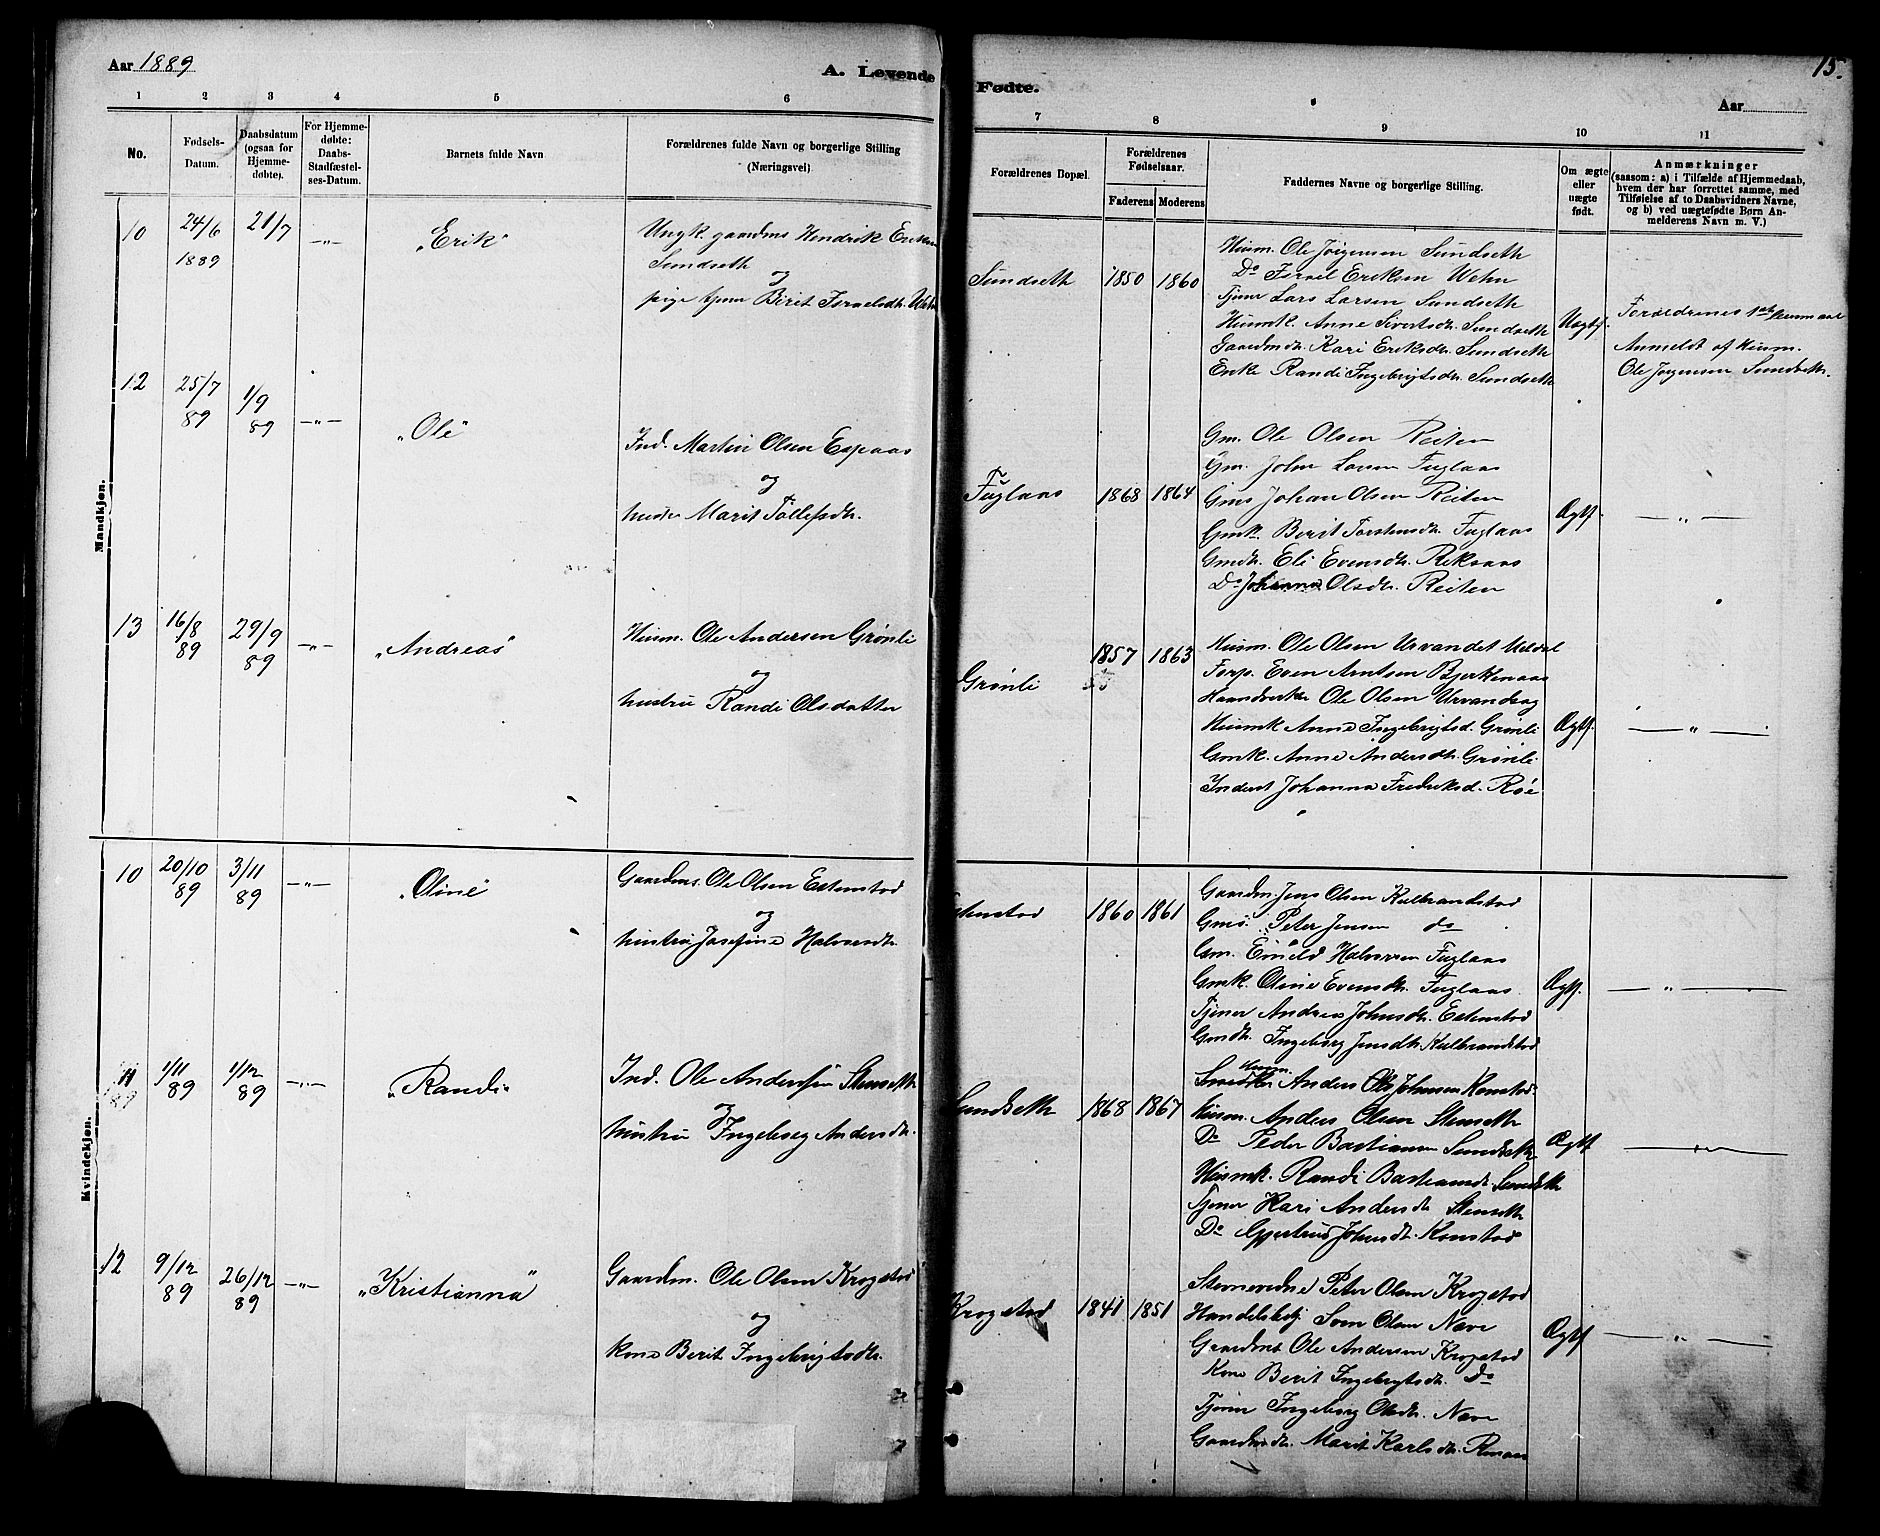 Aar 1889
A. Levende Fødte.
15.
Aar
1 2 3 4 5 6 7 8 9 10 11
No.
Fødsels-Datum.
Daabsdatum (ogsaa for Hjemmedøbte).
For Hjemmedøbte: Daabs-Stadfæstelses-Datum.
Barnets fulde Navn
Forældrenes fulde Navn og borgerlige Stilling (Næringsvei)
Forældrenes Dopæl.
Forældrenes Fødselsaar.
Faderens Moderens
Faddernes Navne og borgerlige Stilling.
Om ægte eller uægte født.
Anmærkninger
(saasom: a) i Tilfælde af Hjemmedaab, hvem der har forrettet samme, med Tilføielse af to Daabsvidners Navne, og b) ved uægtefødte Børn Anmelderens Navn m. V.)
Mandkjøn.
10 24/6 1889 21/7 -„- „Erik“
Ungk. gaardms Hendrik Eriksen
Sundseth
og
pige tjener Berit Israelsdtr.
Sundseth 1850 1860
Husm. Ole Jørgensen Sundseth
Do Israel Eriksen
Tjener Lars Larsen Sundseth
Husmk. Anne Sivertsdtr. Sundseth
Gaardmdtr. Kari Eriksdtr. Sundseth
Enke Randi Ingebrigtsdtr. Sundseth
Uægtf.
Forældrenes 1ste
Anmeldt af Husm.
Ole Jørgensen Sundseth.
12 25/7 89 1/9 89 -„- „Ole“
Ind. Martin Olsen Espaas
og
hustru Marit Tollefsdtr.
Fuglaas 1868 1864
Gm. Ole Olsen Reiten
Gm. John Larsen Fuglaas
Gms Johan Olsen Reiten
Gmk. Berit Torstensdtr. Fuglaas
Gmdtr. Eli Evensdtr. Reksaas
Do Johanna Olsdtr. Reiten
Ægtf. — „ —
13 16/8 89 29/9 89 -„- „Andreas“
Husm. Ole Andersen Grønli
og
hustru Randi Olsdatter
Grønli 1857 1863
Husm. Ole Olsen Urvandet Meldal
Forp. Even Arntsen Bjerkenaas
Haandverker Ole Olsen
Husmk Anne Ingebrigtsd. Grønli
Gmk. Anne Andersdtr. Grønli
Inderst Johanna Fredriksd. Røe
Ægtf. — „ —
Kvindekjøn.
10 20/10 89 3/11 89 -„- „Oline“
Gaardms. Ole Olsen Estenstad
og
hustru Josefine Halvorsdtr.
1860 1861
Gaardm. Jens Olsen Kulbrandstad
Gms. Peter Jensen do
Gm. Halvorsen Fuglaas
Gmk. Oline Evensdtr. Fuglaas
Tjener Andrea Johnsdtr. Estenstad
Gmdtr. Ingeborg Jensdtr. Kulbrandstad
Ægtf. — „ —
11 1/11 89 1/12 89 -„- „Randi“
Ind. Ole Andersen Stenseth
og
hustru Ingeborg Andersdtr.
Sundseth 1868 1867
Husm. Anders Johnsen Konstad
Husm. Anders Olsen Stenseth
Do Peder Bastiansen Sundseth
Husmk. Randi Bastiansdtr. Sundseth
Tjener Kari Andersdtr Stenseth
Do Gjertrud Johnsdtr. Konstad
Ægtf — „ —
12 9/12 89 26/12 89 -„- „Kristianna“
Gaardm. Ole Olsen Krogstad
og
kone Berit Ingebrigtsdtr.
Krogstad 1841 1851
Peter Olsen Krogstad
Handelsbetj. Olsen Næve
Gaardms Ole Andersen Krogstad
Kone Berit Ingebrigtsdtr. Do
Tjener Ingeborg Olsdtr. Næve
Gaardmdtr. Marit Karlsdtr.
Ægtf — „ —